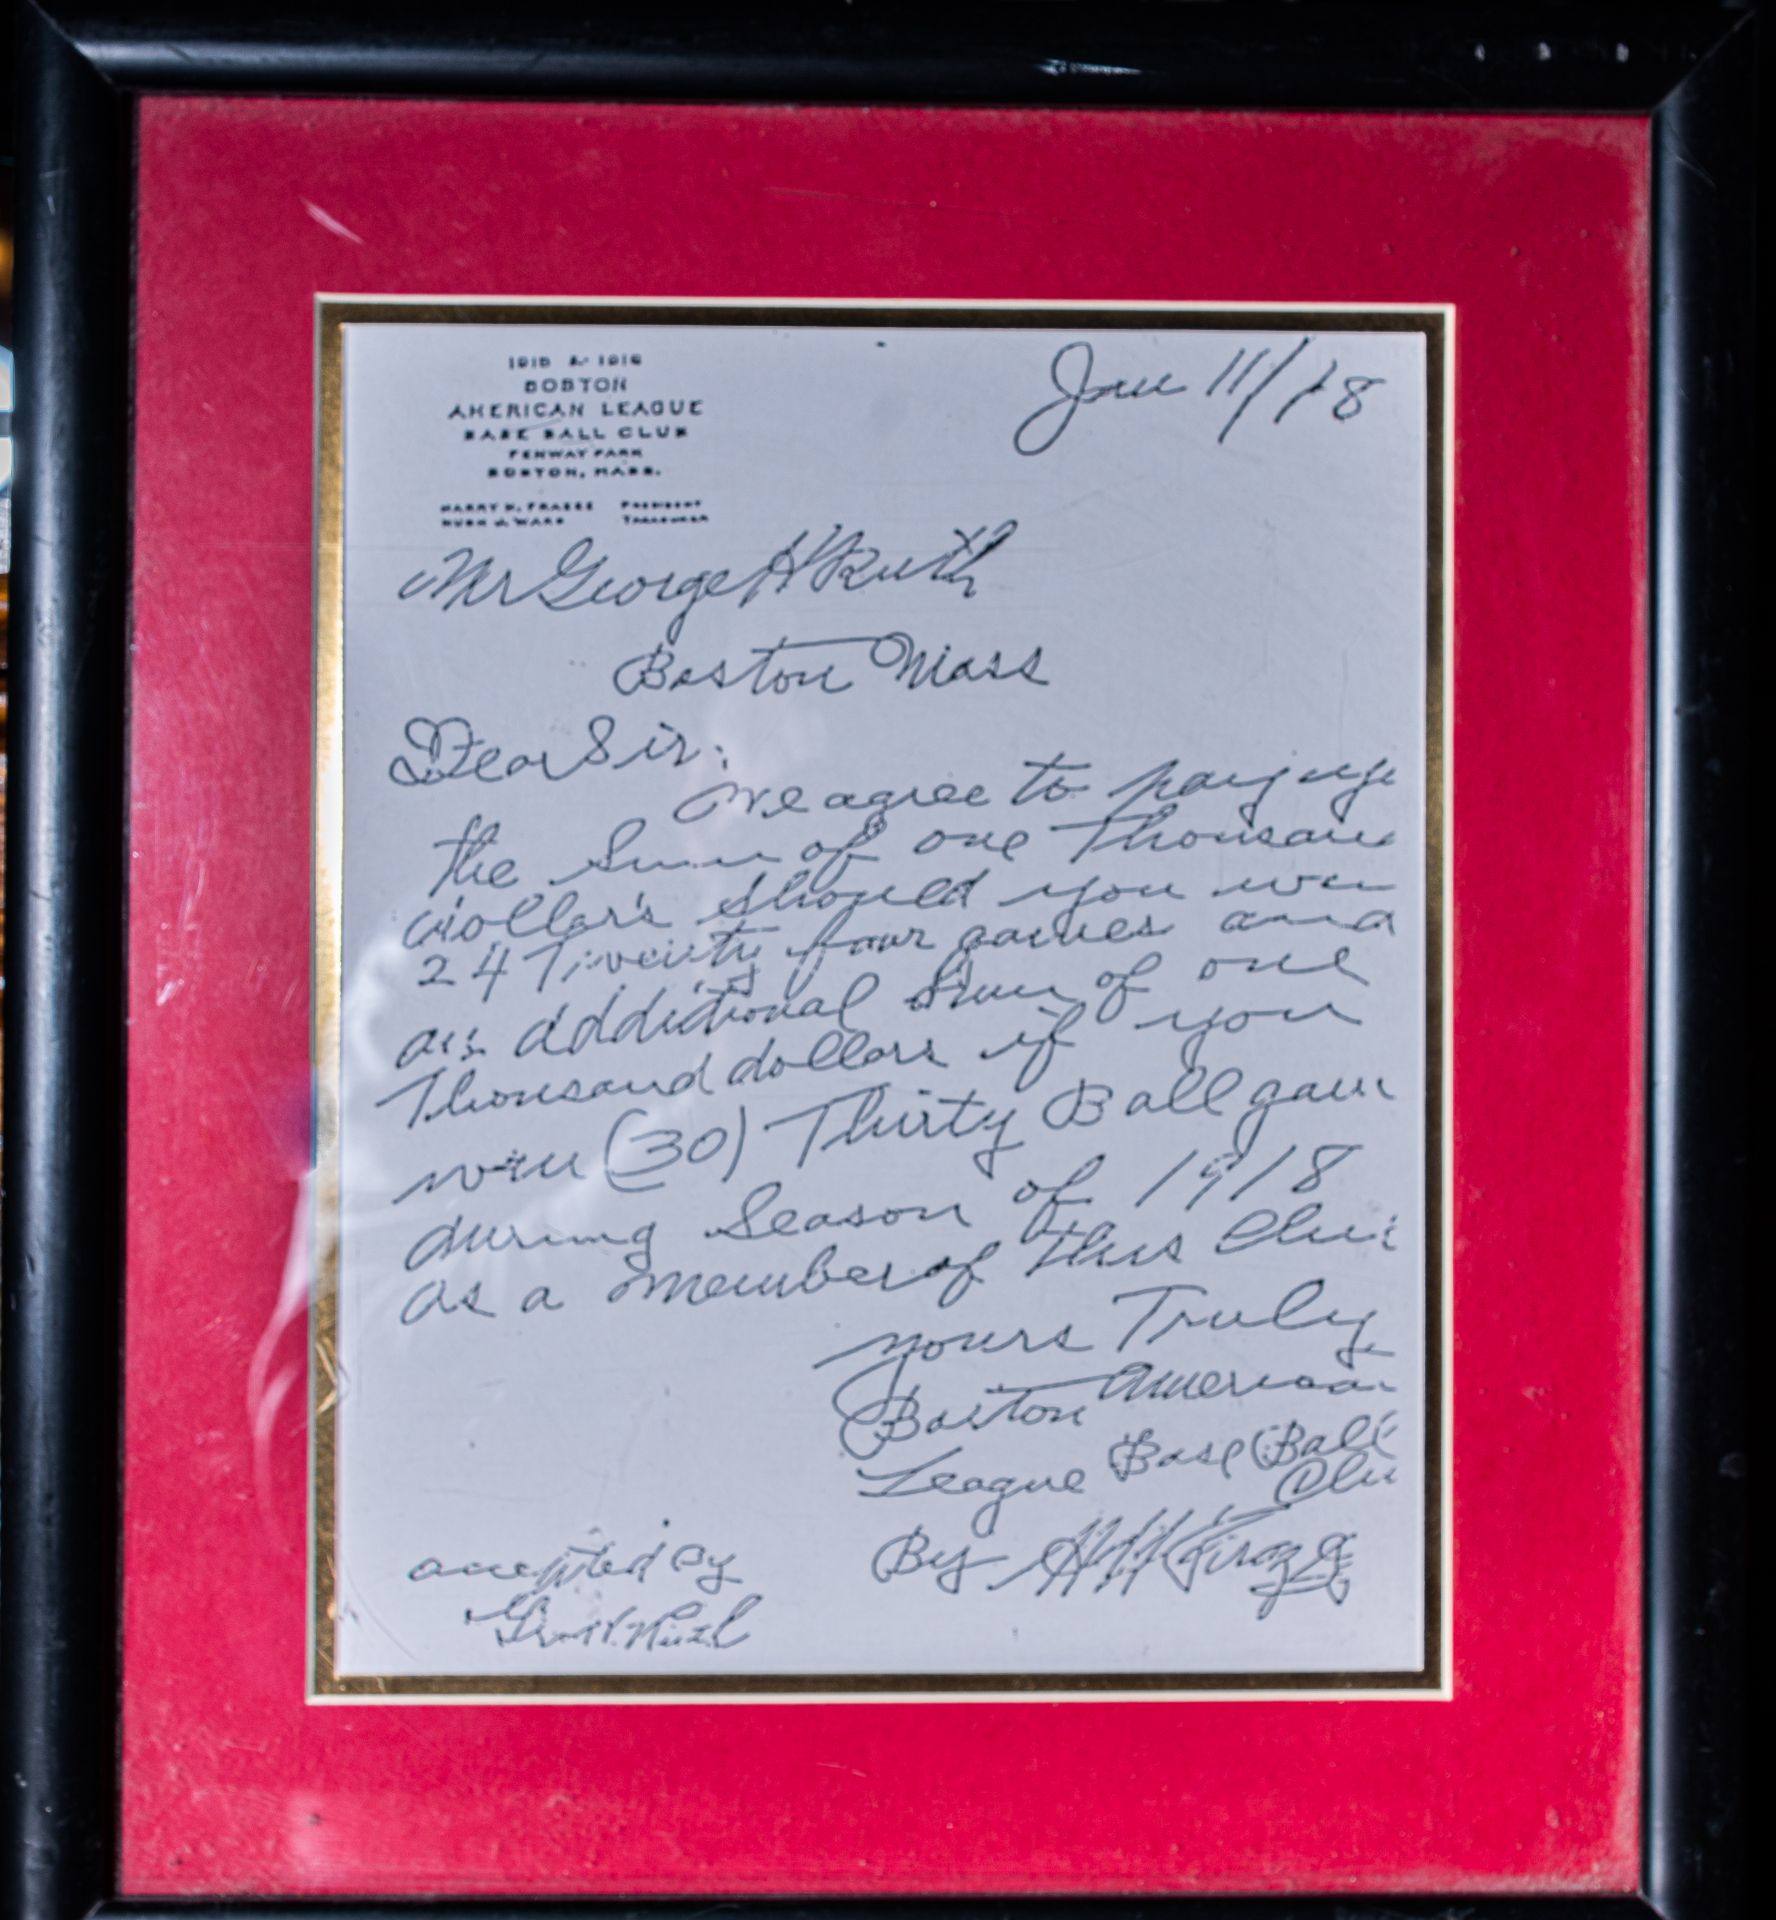 1915 & 1916
BOSTON
AMERICAN LEAGUE
BASE BALL CLUB
FENWAY PARK
BOSTON, MASS.
HARRY H. FRAZEE PRESIDENT
HUGH J. WARD TREASURER
Jan 11/18
Mr George H Ruth
Boston Mass
Dear Sir:
We agree to pay you
the Sum of one Thousand
dollars should you win
24 Twenty four games and
an additional Sum of one
Thousand dollars if you
win (30) Thirty Ball games
during Season of 1918
as a member of this Club
Yours Truly
Boston American
League Base Ball
Club
By H H Frazee
accepted By
Geo. H. Ruth